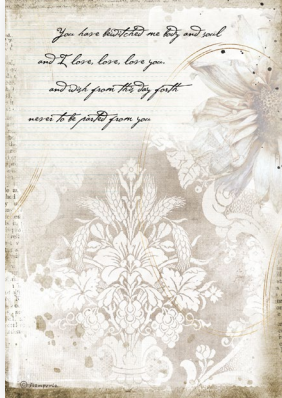 You have bewitched me body and soul
and I love, love, love you
and wish from this day forth
never to be parted from you
©Stamperia